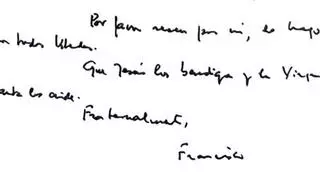 Por favor recen por mí, lo hago
con todos Ustedes.
Que Jesús los bendiga y la Virgen
Santa los cuide.
Fraternalmente,
Francisco